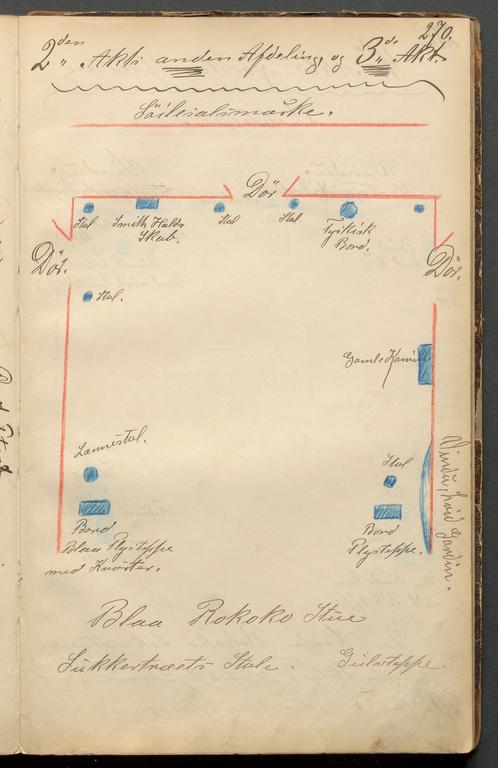 270.
2den Akts anden Afdeling, og 3die Akt.
Söilesalsmærke.
Dör
Stol
Smith Halds
Skab.
Stol
Stol
Tyrkisk
Bord.
Dör.
Dör.
Stol.
Gamle Kamin
Lænnestol.
Stol
Vindu, hvid Gardin.
Bord
Blaa Plysteppe
med Kvaster.
Bord
Plysteppe.
Blaa Rokoko Stue
Sukkertræets Stole. Gulvteppe.